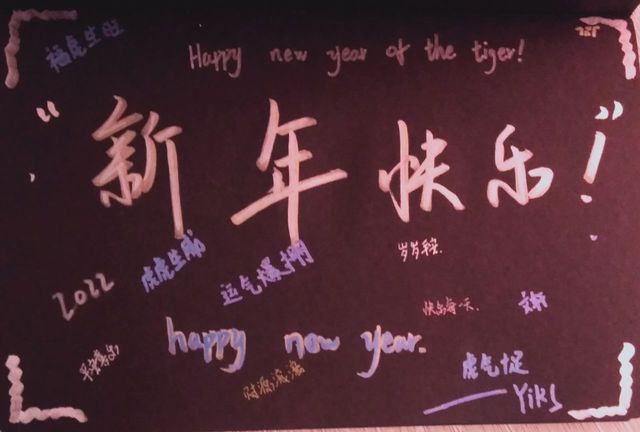 福虎生旺
Happy new year of the tiger!
“新年快乐！”
岁岁平安.
虎虎生威
运气爆棚
2022
快乐每一天.
happy new year.
财源滚滚
虎气足
Yiks